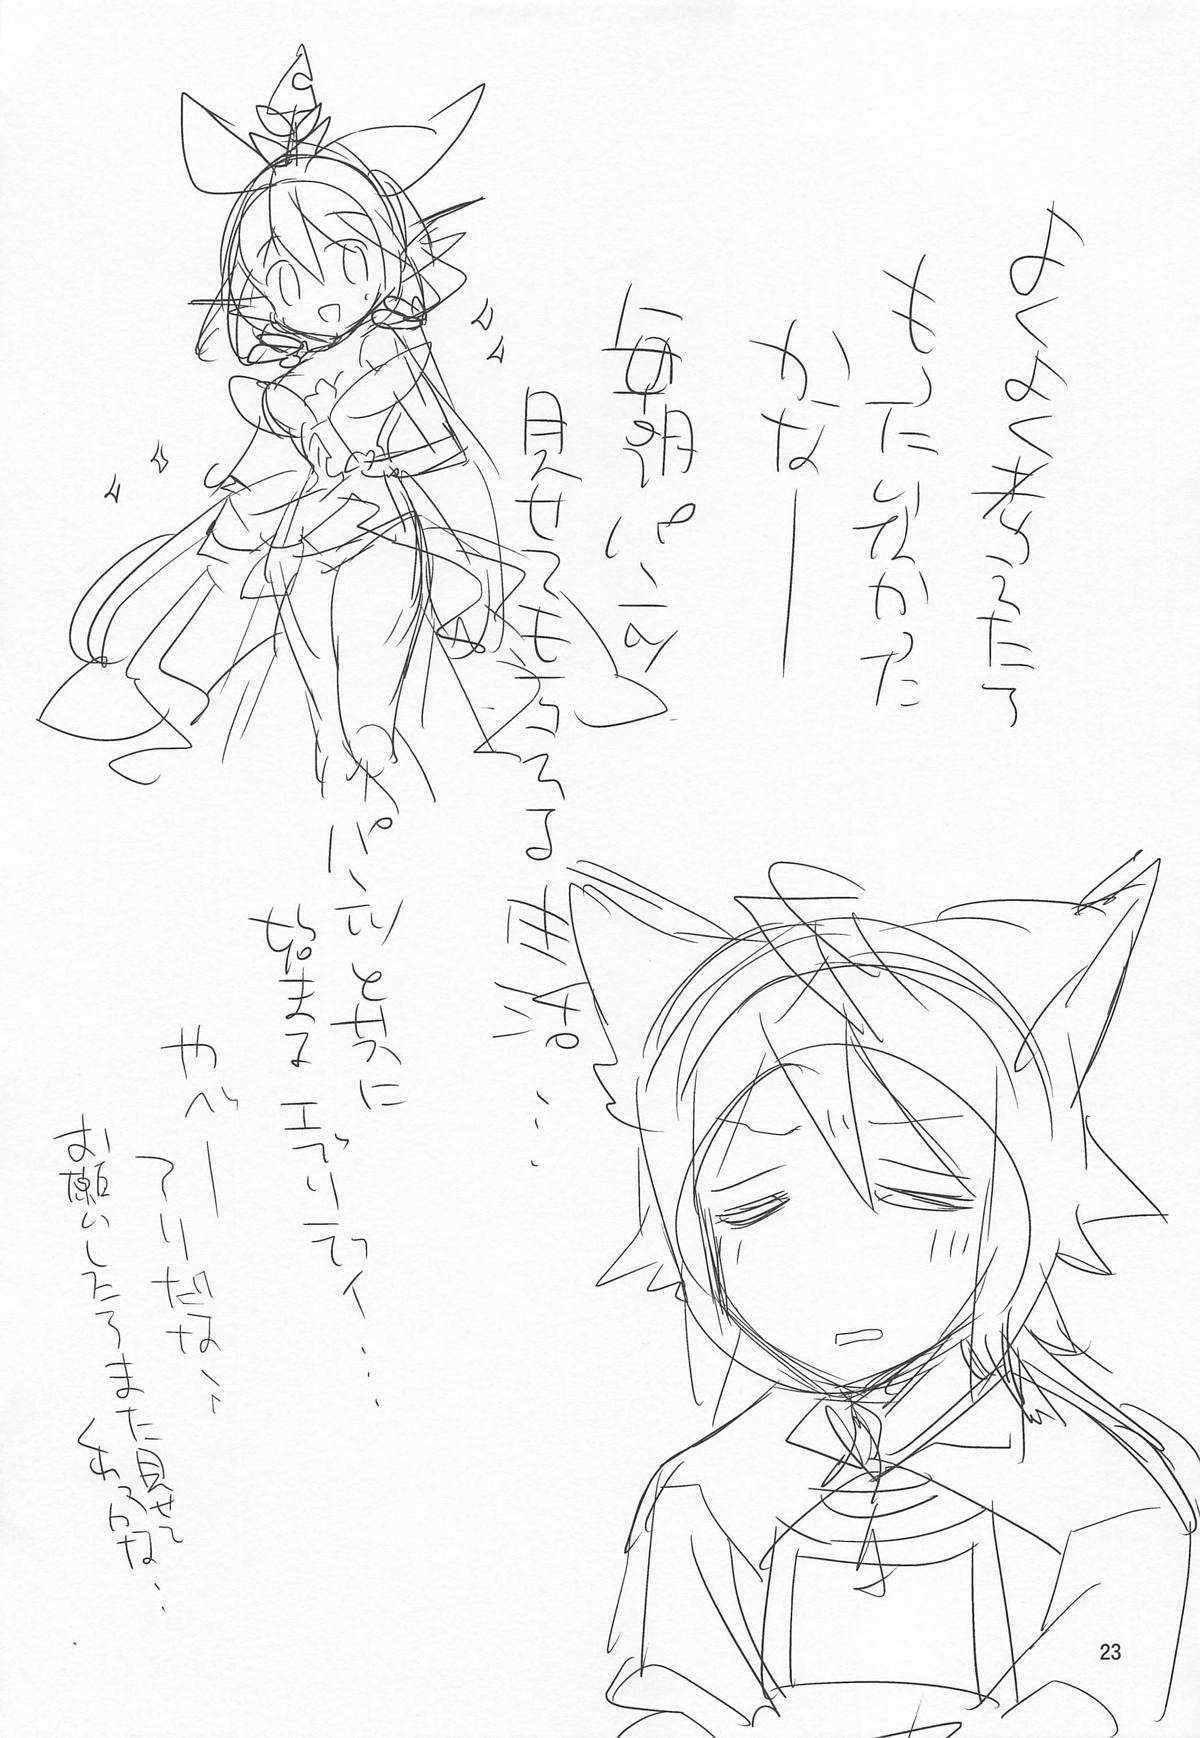 よくよく考えたら
もったいなかった
かなーー
毎朝パンツ
見せてもらえる世界…
パンツと共に
始まるエブリディ…
やべーー
アリだな…
お願いしたらまた見せて
くれっかな…
23